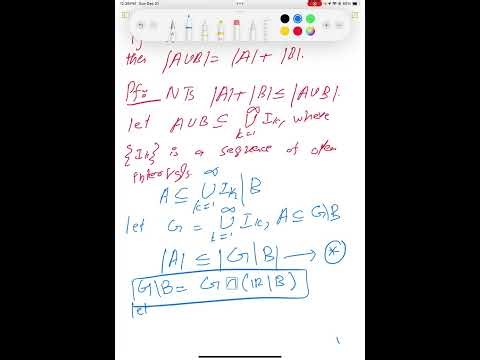 12:29 PM Sun Dec 31
then |A∪B| = |A| + |B|.
Pf:- NTS |A| + |B| ≤ |A∪B|.
let A∪B ⊆ ∞⋃k=1 Ik, where
{Ik} is a sequence of open
intervals
A ⊆ ∞⋃k=1 Ik|B
let G = ∞⋃k=1 Ik, A ⊆ G|B
|A| ≤ |G|B| → *
G|B = G ∩ (IR|B)
let